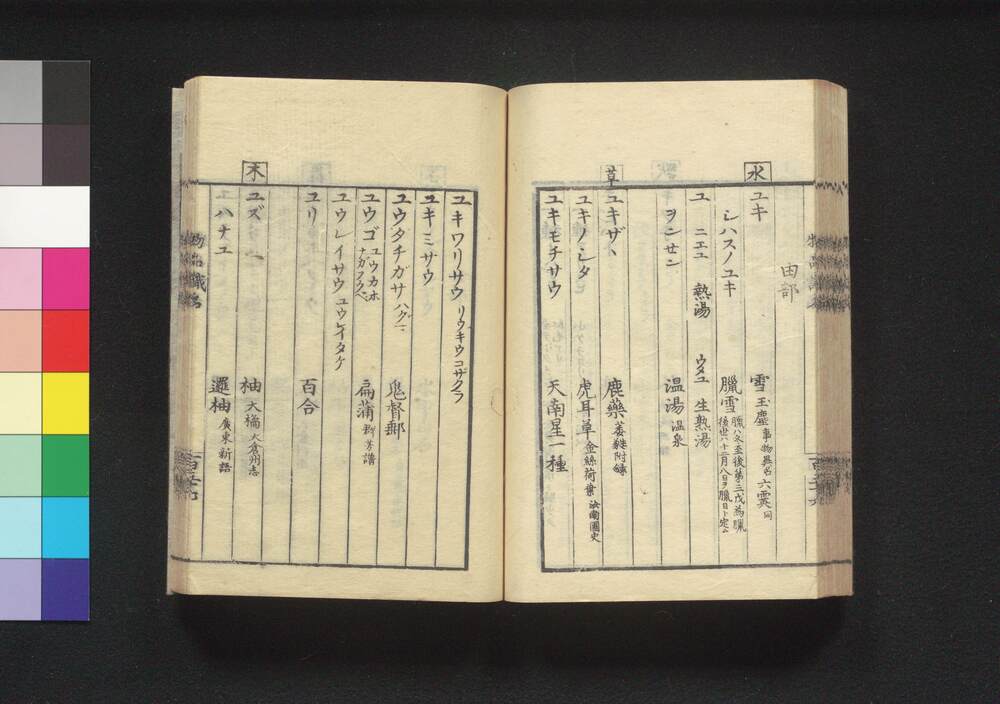 由部
水
ユキ 雪 玉塵 事物異名 六霙 同
シハスノユキ 臘雪 臘ハ冬至後第三戊為臘
後世十二月八日ヲ臘日ト定ム
ユ ニエユ 熱湯 ウタユ 生熟湯
ヲンセン 温湯 温泉
草
ユキザヽ 鹿藥 萎蕤附録
ユキノシタ 虎耳草 金絲荷葉 汝南圃史
ユキモチサウ 天南星一種
ユキワリサウ リウキウコザクラ
ユキミサウ
ユウタチガサ ハグマ 鬼督郵
ユウゴ ユウカホ
ナガフクベ 扁蒲 群芳譜
ユウレイサウ ユウレイタケ
ユリ 百合
木
ユズ 柚 大橘 太倉州志
ハナユ 邏柚 廣東新語
物品識名